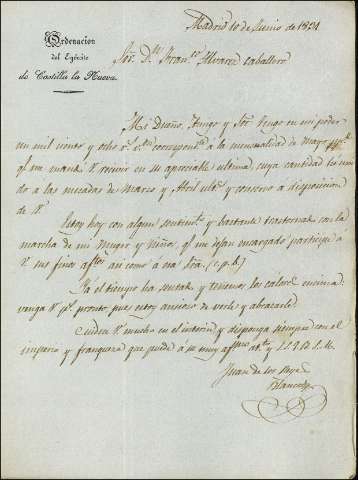 Ordenacion
del Egército
de Castilla la Nueva.
Madrid 10 de Junio de 1831
Sor. Dn. Franco. Alvarez Caballero
Mi Dueño, Amigo y Sor. tengo en mi poder
un mil ciento y ocho rs. correspones. a la mensualidad de Mayo
qe. me manda V. recivir en su apreciable ultima, cuya cantidad
do a las mesadas de Marzo y Abril ulto. y conservo a disposicion
de V.
Estoy hoy con algun sentimto. y bastante trastornado con la
marcha de mi Muger y Niños, qe. me dejan encargado participe á
V. sus finos aftos. asi como á esa Sra. (c.p.b.)
Ya el tiempo ha sentado y tenemos los calores encima:
venga V. pr. pronto, pues estoy ansioso de verle y abrazarle.
Cuidese V. mucho en el interin y disponga siempre con el
imperio y franqueza que puede á su muy affmo. at. y S.S.Q.B.S.M.
Juan de los Reyes
Blancos